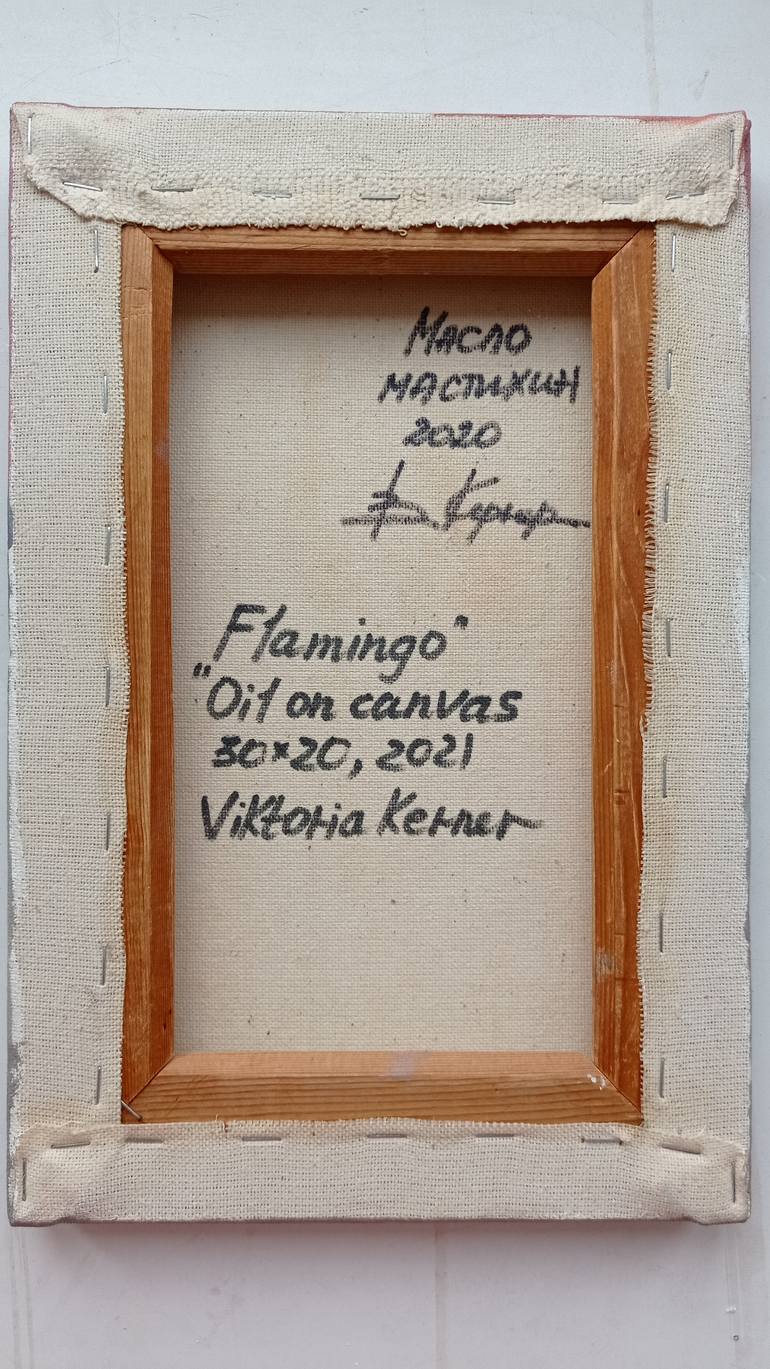 Масло
мастихин
2020
В. Кернер
Flamingo"
"Oil on canvas
30×20, 2021
Viktoria Kerner